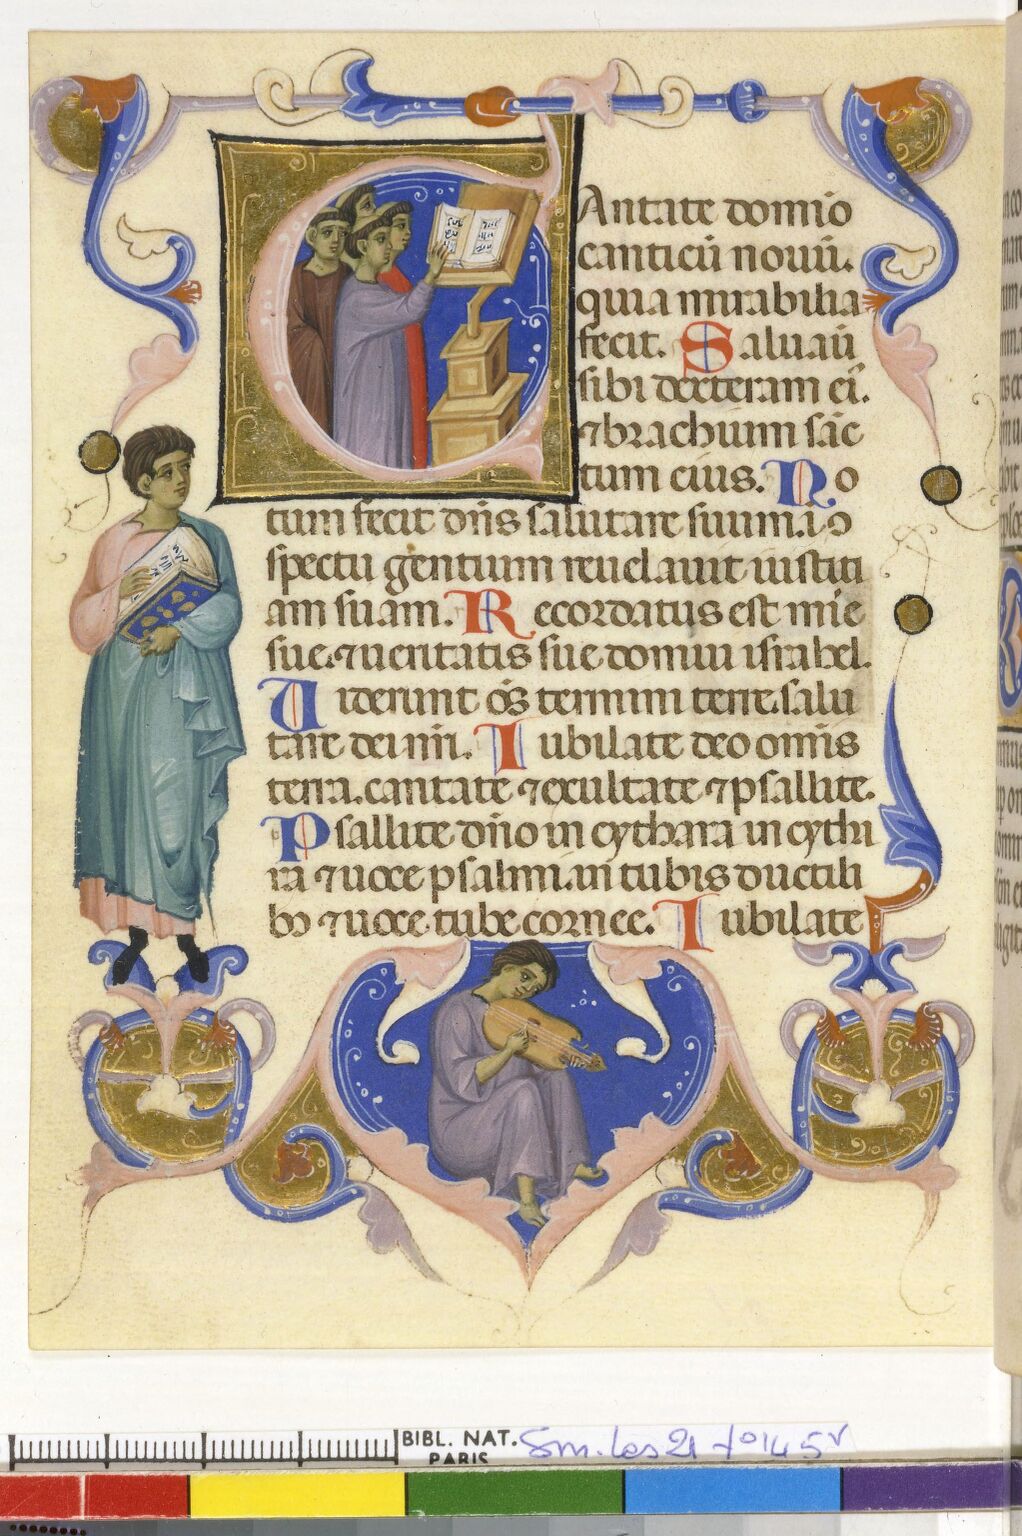 CAntate domıo
canticū nouū.
quia mirabilia
fecit. Saluaū
sibi dextera​m ei᷒.
⁊brachium sāc
tum eius. No
tum fecit dn̄s salutare suum. i ɔ
spectu gentium reuelauit iusti
am suam. Recordatus est mie
sue.⁊ueritatis sue domui israhel.
Uiderunt oēs termini terre.salu
tare dei nr̄i. Iubilate deo omīs
terra.cantate ⁊exultate ⁊psallite.
Psallite dn̄o in cythara in cyth
ra ⁊uoce psalmi.in tubis ductili
bꝫ ⁊uoce tube cornee. Iubilate
BIBL. NAT.
PARIS
Sm. Les 21 fo 145v